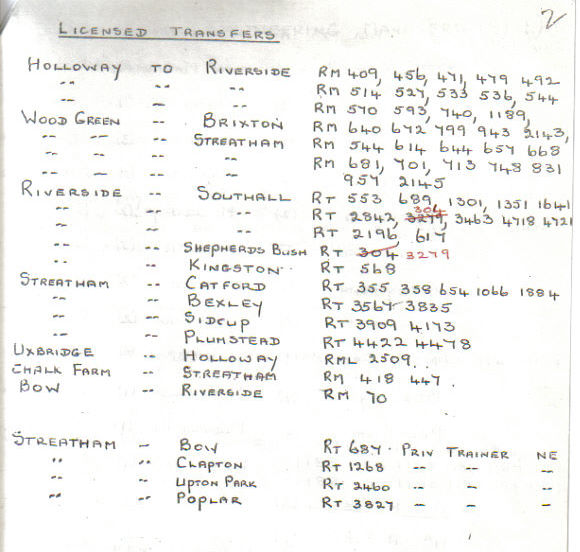 2
LICENSED TRANSFERS
HOLLOWAY TO RIVERSIDE RM 409, 456, 471, 479 492
" " " RM 514 527, 533 536, 544
" " " RM 570 593, 740, 1189,
WOOD GREEN -- BRIXTON RM 640 672 799 943 2143,
" " -- STREATHAM RM 544 614 644 657 668
" " -- " RM 681, 701, 713 748 831
957 2145
RIVERSIDE -- SOUTHALL RT 553 689, 1301, 1351 1641
304
" -- " RT 2842, 3279, 3463 4718 4721
" -- " RT 2196, 617
" -- SHEPHERDS BUSH RT 304 3279
" -- KINGSTON RT 568
STREATHAM -- CATFORD RT 355 358 654 1066 1884
" -- BEXLEY RT 3567 3835
" -- SIDCUP RT 3909 4173
" -- PLUMSTEAD RT 4422 4478
UXBRIDGE -- HOLLOWAY RML 2509.
CHALK FARM -- STREATHAM RM 418 447.
BOW -- RIVERSIDE RM 70
STREATHAM - BOW RT 687. PRIV TRAINER NE
" " CLAPTON RT 1268 -- -- --
" " UPTON PARK RT 2460 -- -- --
" " POPLAR RT 3827 - - -